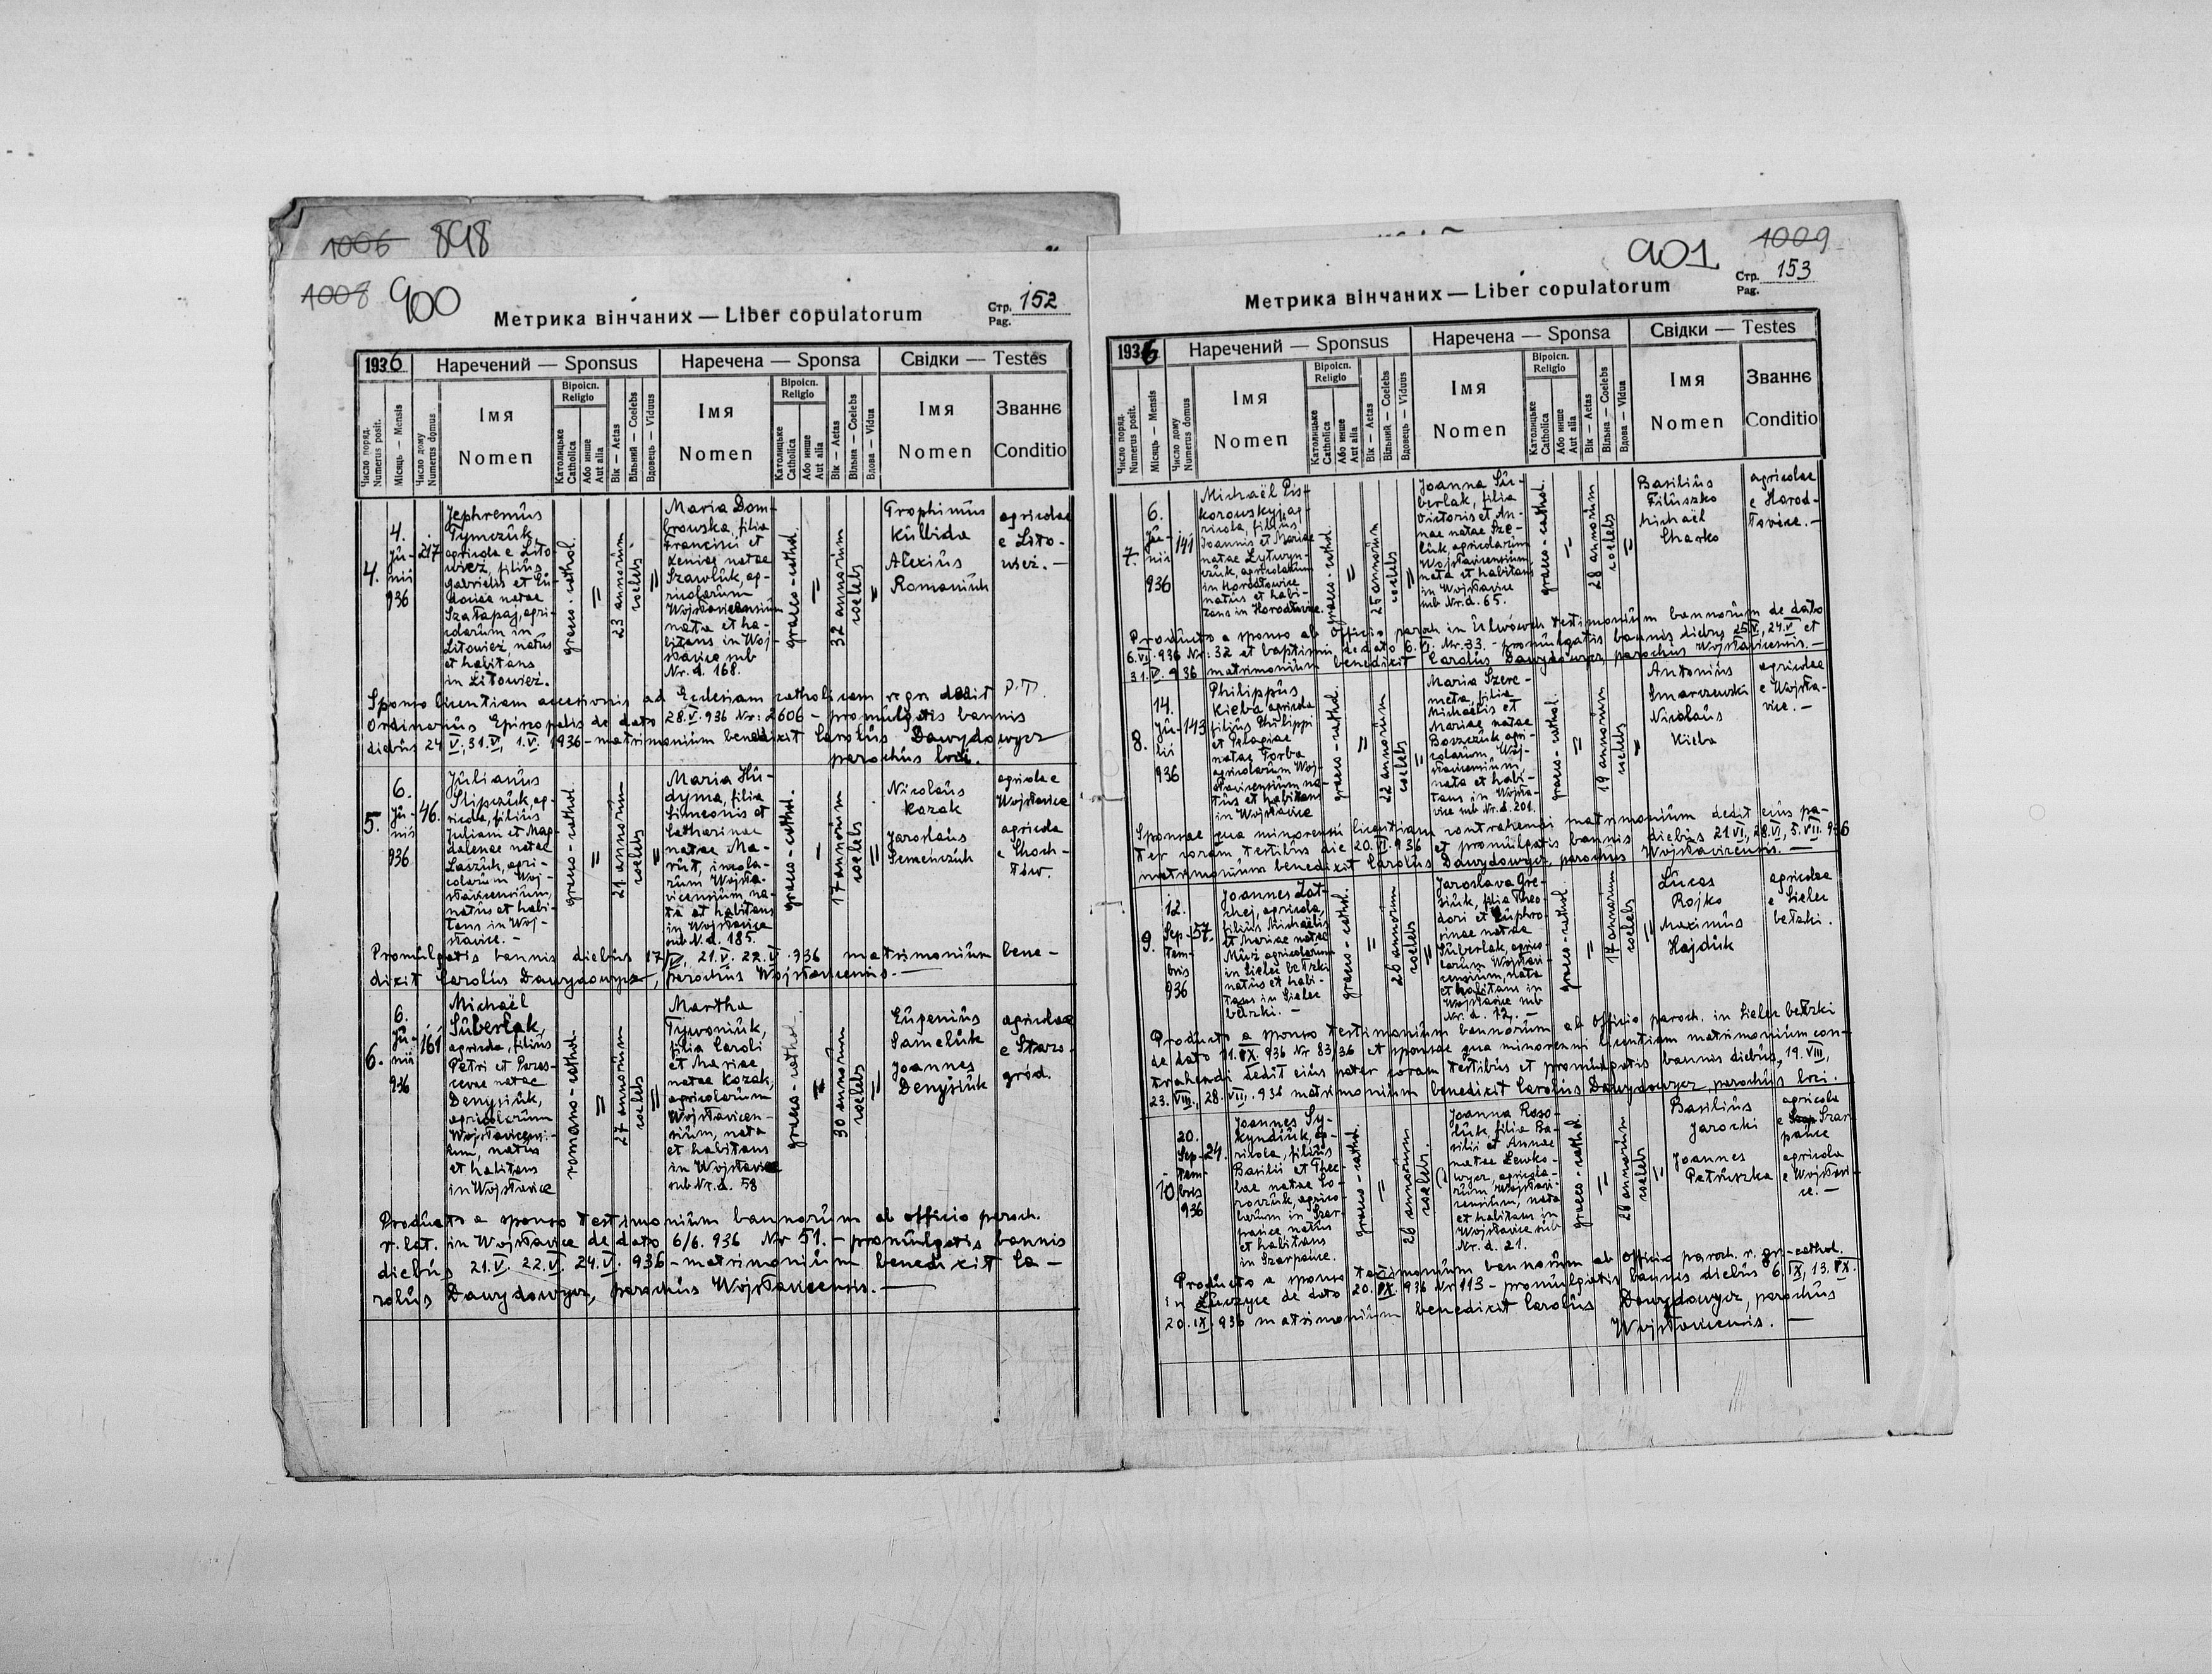 1006 898
1008 900
Метрика вінчаних — Liber copulatorum
Стр. 152
Pag.
1936
Наречений — Sponsus
Наречена — Sponsa
Свідки — Testes
Число поряд.
Numerus posit.
Місяць — Mensis
Число дому
Numerus domus
Імя
Nomen
Віроісп.
Religio
Католицьке
Catholica
Або инше
Aut alia
Вік — Aetas
Вільний — Coelebs
Вдовець — Viduus
Імя
Nomen
Віроісп.
Religio
Католицьке
Catholica
Або инше
Aut alia
Вік — Aetas
Вільна — Coelebs
Вдова — Vidua
Імя
Nomen
Званнє
Conditio
4.
4.
Jŭ-
nii
936
217
Jephremŭs
Tymczŭk,
agricola e Lito-
wież, filiŭs
Gabrielis et Eŭ-
dociae natae
Szałapaj, agri-
colarŭm in
Litowież, natŭs
et habitans
in Litowież.
graeco-cathol.
=
23 annorŭm
coelebs
=
Maria Dom-
browska, filia
Francisci et
Xeniae natae
Szawlŭk, ag-
ricolarŭm
Wojsławicensiŭm
nata et ha-
bitans in Woj-
sławice sub
Nr. d. 168.
graeco-cathol.
=
32 annorŭm
coelebs
=
Trophimŭs
Kŭlbida
Alexiŭs
Romaniŭk
agricolae
e Lito-
wież. —
Sponso licentiam accessionis ad Ecclesiam catholicam r. gr. dedit P. T.
Ordinariŭs Episcopalis de dato 28.V.936 Nr: 2606 - promŭlgatis bannis
diebŭs 24.V. 31.V, 1.V. 1936 - matrimoniŭm benedixit Carolŭs Dawydowycz
parochŭs loci.
5.
6.
Jŭ-
nii
936
46.
Jŭlianŭs
Slipczŭk, ag-
ricola, filiŭs
Juliani et Mag-
dalenae natae
Laszŭk, agri-
colarŭm Woj-
sławicensiŭm,
natŭs et habi-
tans in Woj-
sławice. -
graeco-cathol.
=
21 annorŭm
coelebs
=
Maria Hŭ-
dyma, filia
Simeonis et
Catharinae
natae Ma-
rŭt, incola-
rŭm Wojsła-
vicensiŭm, na-
ta et habitans
in Wojsławice
sub N. d. 185.
graeco-cathol.
=
17 annorŭm
coelebs
=
Nicolaŭs
Kozak
Jaroslaŭs
Semenczŭk
agricola e
Wojsławice
agricola
e Choch-
łów.
Promŭlgatis bannis diebŭs 17/V, 21.V. 22.V. 936 matrimoniŭm bene-
dixit Carolŭs Dawydowycz, parochŭs Wojsławicensis. —
6.
6.
Jŭ-
nii
936
161
Michaël
Sŭberlak,
agricola, filiŭs
Petri et Paras-
cevae natae
Denysiŭk,
agricolarŭm
Wojsławicensi-
ŭm, natŭs
et habitans
in Wojsławice
romano-cathol.
=
27 annorŭm
coelebs
=
Martha
Tywoniŭk,
filia Caroli
et Mariae
natae Kozak,
agricolarŭm
Wojsławicen-
siŭm, nata
et habitans
in Wojsławice
sub Nr. d. 58
graeco-cathol.
=
30 annorŭm
coelebs
=
Eŭgeniŭs
Samelŭk
Joannes
Denysiŭk
agricolae
e Staro-
gród.
Prodŭcto a sponso testimoniŭm bannorŭm ab officio paroch.
r. lat. in Wojsławice de dato 6/6. 936 Nr 51. - promŭlgatis bannis
diebŭs 21.V. 22.V. 24.V. 936 - matrimoniŭm benedixit Ca-
rolŭs Dawydowycz, parochŭs Wojsławicensis. —
901 1009
Метрика вінчаних — Liber copulatorum
Стр. 153
Pag.
1936
Наречений — Sponsus
Наречена — Sponsa
Свідки — Testes
Число поряд.
Numerus posit.
Місяць — Mensis
Число дому
Numerus domus
Імя
Nomen
Віроісп.
Religio
Католицьке
Catholica
Або инше
Aut alia
Вік — Aetas
Вільний — Coelebs
Вдовець — Viduus
Імя
Nomen
Віроісп.
Religio
Католицьке
Catholica
Або инше
Aut alia
Вік — Aetas
Вільна — Coelebs
Вдова — Vidua
Імя
Nomen
Званнє
Conditio
7.
6.
Jŭ-
nii
936
141
Michaël Pis-
korowskyj, ag-
ricola, filiŭs
Joannis et Mariae
natae Lytwyn-
czŭk, agricolarŭm
in Horodłowice
natŭs et habi-
tans in Horodłowice.
graeco-cathol.
=
25 annorŭm
coelebs
=
Joanna Sŭ-
berlak, filia
Victoris et An-
nae natae Sze-
lŭk, agricolarŭm
Wojsławicensiŭm,
nata et habitans
in Wojsławice
sub Nr. d. 65.
graeco-cathol.
=
28 annorŭm
coelebs
=
Basiliŭs
Filŭszko
Michaël
Charko
agricolae
e Horod-
łowice. —
Prodŭcto a sponso ab officio paroch. in Ŭhwówek testimoniŭm bannorŭm de dato
6.VI.936 Nr: 32 et baptismi de dato 6.VI. Nr. 33. - promŭlgatis bannis diebŭs 25.V, 24.V et
31.V. 936 matrimoniŭm benedixit Carolŭs Dawydowycz, parochŭs Wojsławicensis. —
8.
14.
Jŭ-
lii
936
143
Philippŭs
Kieba agricola
filiŭs Philippi
et Pelagiae
natae Torba
agricolarŭm Woj-
sławicensiŭm na-
tŭs et habitans
in Wojsławice
graeco-cathol.
=
22 annorŭm
coelebs
=
Maria Szere-
meta, filia
Michaelis et
Mariae natae
Boszczŭk agri-
colarŭm Woj-
sławicensiŭm
nata et habi-
tans in Wojsła-
wice sub Nr. d. 201.
graeco-cathol.
=
19 annorŭm
coelebs
=
Antoniŭs
Smarzewski
Nicolaŭs
Kieba
agricolae
e Wojsła-
wice. —
Sponsae qua minorenni licentiam contrahendi matrimoniŭm dedit eiŭs pa-
ter coram testibŭs die 20.VI.936 et promŭlgatis bannis diebŭs 21.VI, 28.VI, 5.VII.936
matrimoniŭm benedixit Carolŭs Dawydowycz, parochŭs Wojsławicensis. —
9.
12.
Sep-
tem-
bris
936
57.
Joannes Łat-
chej, agricola,
filiŭs Michaëlis
et Mariae natae
Mŭż agricolarŭm
in Sielec bełzki
natŭs et habi-
tans in Sielec
bełzki. -
graeco-cathol.
=
26 annorŭm
coelebs
=
Jaroslava Gre-
siŭk, filia Theo-
dori et Eŭphro-
sinae natae
Sŭberlak, agrico-
larŭm Wojsławi-
censiŭm, nata
et habitans in
Wojsławice sub
Nr. d. 12. -
graeco-cathol.
=
17 annorŭm
coelebs
=
Lŭcas
Rojko
Maximŭs
Hajdŭk
agricolae
e Sielec
bełzki.
Prodŭcto a sponso testimoniŭm bannorŭm ab officio paroch. in Sielec bełzki
de dato 11.IX.936 Nr 83/36 et sponsae qua minorenni licentiam matrimoniŭm con-
trahendi dedit eiŭs pater coram testibŭs et promŭlgatis bannis diebŭs, 19.VIII,
23.VIII., 28.VIII.936 matrimoniŭm benedixit Carolŭs Dawydowycz, parochŭs loci.
10
20.
Sep-
tem-
bris
936
24.
Joannes Sy-
kyndiŭk, ag-
ricola, filiŭs
Basilii et Thec-
lae natae Bo-
rowŭk, agrico-
larŭm in Szar-
panice natŭs
et habitans
in Szarpanice.
graeco-cathol.
=
26 annorŭm
coelebs
=
Joanna Roso-
lŭk, filia Ba-
silii et Annae
natae Lewko-
wycz, agricola-
rŭm Wojsławi-
censiŭm, nata
et habitans in
Wojsławice sub
Nr. d. 21.
graeco-cathol.
=
26 annorŭm
coelebs
=
Basiliŭs
Jarocki
Joannes
Petrŭszka
agricola
e Szar
panice
agricola
e Wojsławi-
ce. —
Prodŭcto a sponso testimoniŭm bannorŭm ab officio paroch. r. gr.-cathol.
in de dato 20.IX.936 Nr 113 - promŭlgatis bannis diebŭs 6.IX, 13.IX.
20.IX.936 matrimoniŭm benedixit Carolŭs Dawydowycz, parochŭs
Wojsławicensis. —